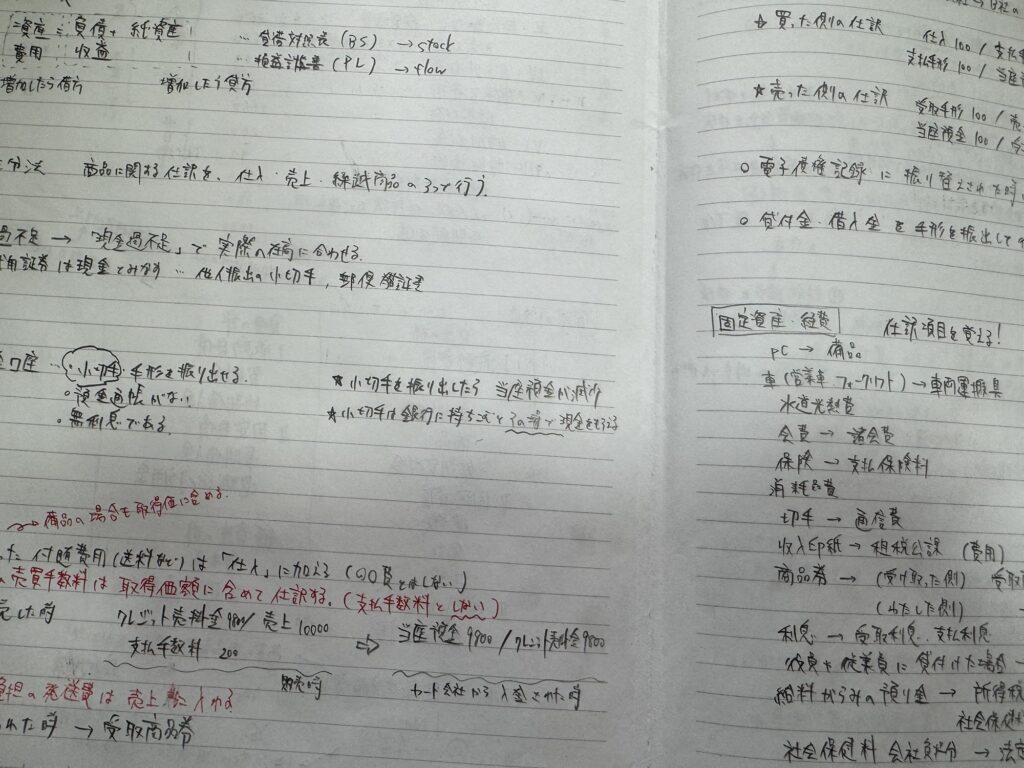 資産 = 負債 + 純資産 … 貸借対照表 (BS) → stock
費用 収益 … 損益計算書 (PL) → flow
増加したら借方 増加したら貸方
分法 商品に関する仕訳を、仕入・売上・繰越商品の3つで行う。
過不足 → 「現金過不足」で実際の在高に合わせる。
証券は現金とみなす … 他人振出の小切手,郵便為替証書
口座 … ・小切手 手形を振り出せる。
○預金通帳がない
○無利息である。
★小切手を振り出したら 当座預金が減少
★小切手は銀行に持ち込むとその場で現金をもらえる
→ 備品の場合も取得価に含める。
た 付随費用(送料など)は「仕入」に加える (○○費とはしない)
売買手数料は 取得価額に含めて仕訳する。(支払手数料としない)
売した時 クレジット売掛金 9800 / 売上 10000 ⇨ 当座預金 9800 / クレジット売掛金 9800
支払手数料 200
販売時 カード会社から入金された時
負担の発送費は売上に入れる
れた時 → 受取商品券
☆買った側の仕訳 仕入 100 / 支払手
支払手形 100 / 当座
★売った側の仕訳 受取手形 100 / 売
当座預金 100 / 受
○ 電子債権記録に振り替えされた時
○ 貸付金・借入金 を手形を振出して
固定資産・経費 仕訳項目を覚える!
PC → 備品
車(営業車 フォークリフト) → 車両運搬具
水道光熱費
会費 → 諸会費
保険 → 支払保険料
消耗品費
切手 → 通信費
収入印紙 → 租税公課 (費用)
商品券 → (受け取った側) 受取
(わたした側) →
利息 → 受取利息、支払利息
役員や従業員に貸付けた場合 →
給料からみの預り金 → 所得税
社会保険
社会保険料 会社負担分 → 法定